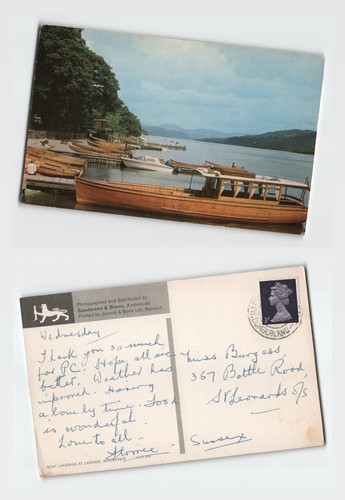 Photographed and distributed by
Sanderson & Dixon, Ambleside
Printed by Jarrold & Sons Ltd, Norwich
Wednesday
Thank you so much
for PC. Hope all are
better, Weather has
improved. Having
a lovely time. Food
is wonderful.
Love to all -
Florrie
Miss Burgess
367 Battle Road
St Leonards o/s
Sussex
BOAT LANDINGS AT LAKESIDE, WINDERMERE